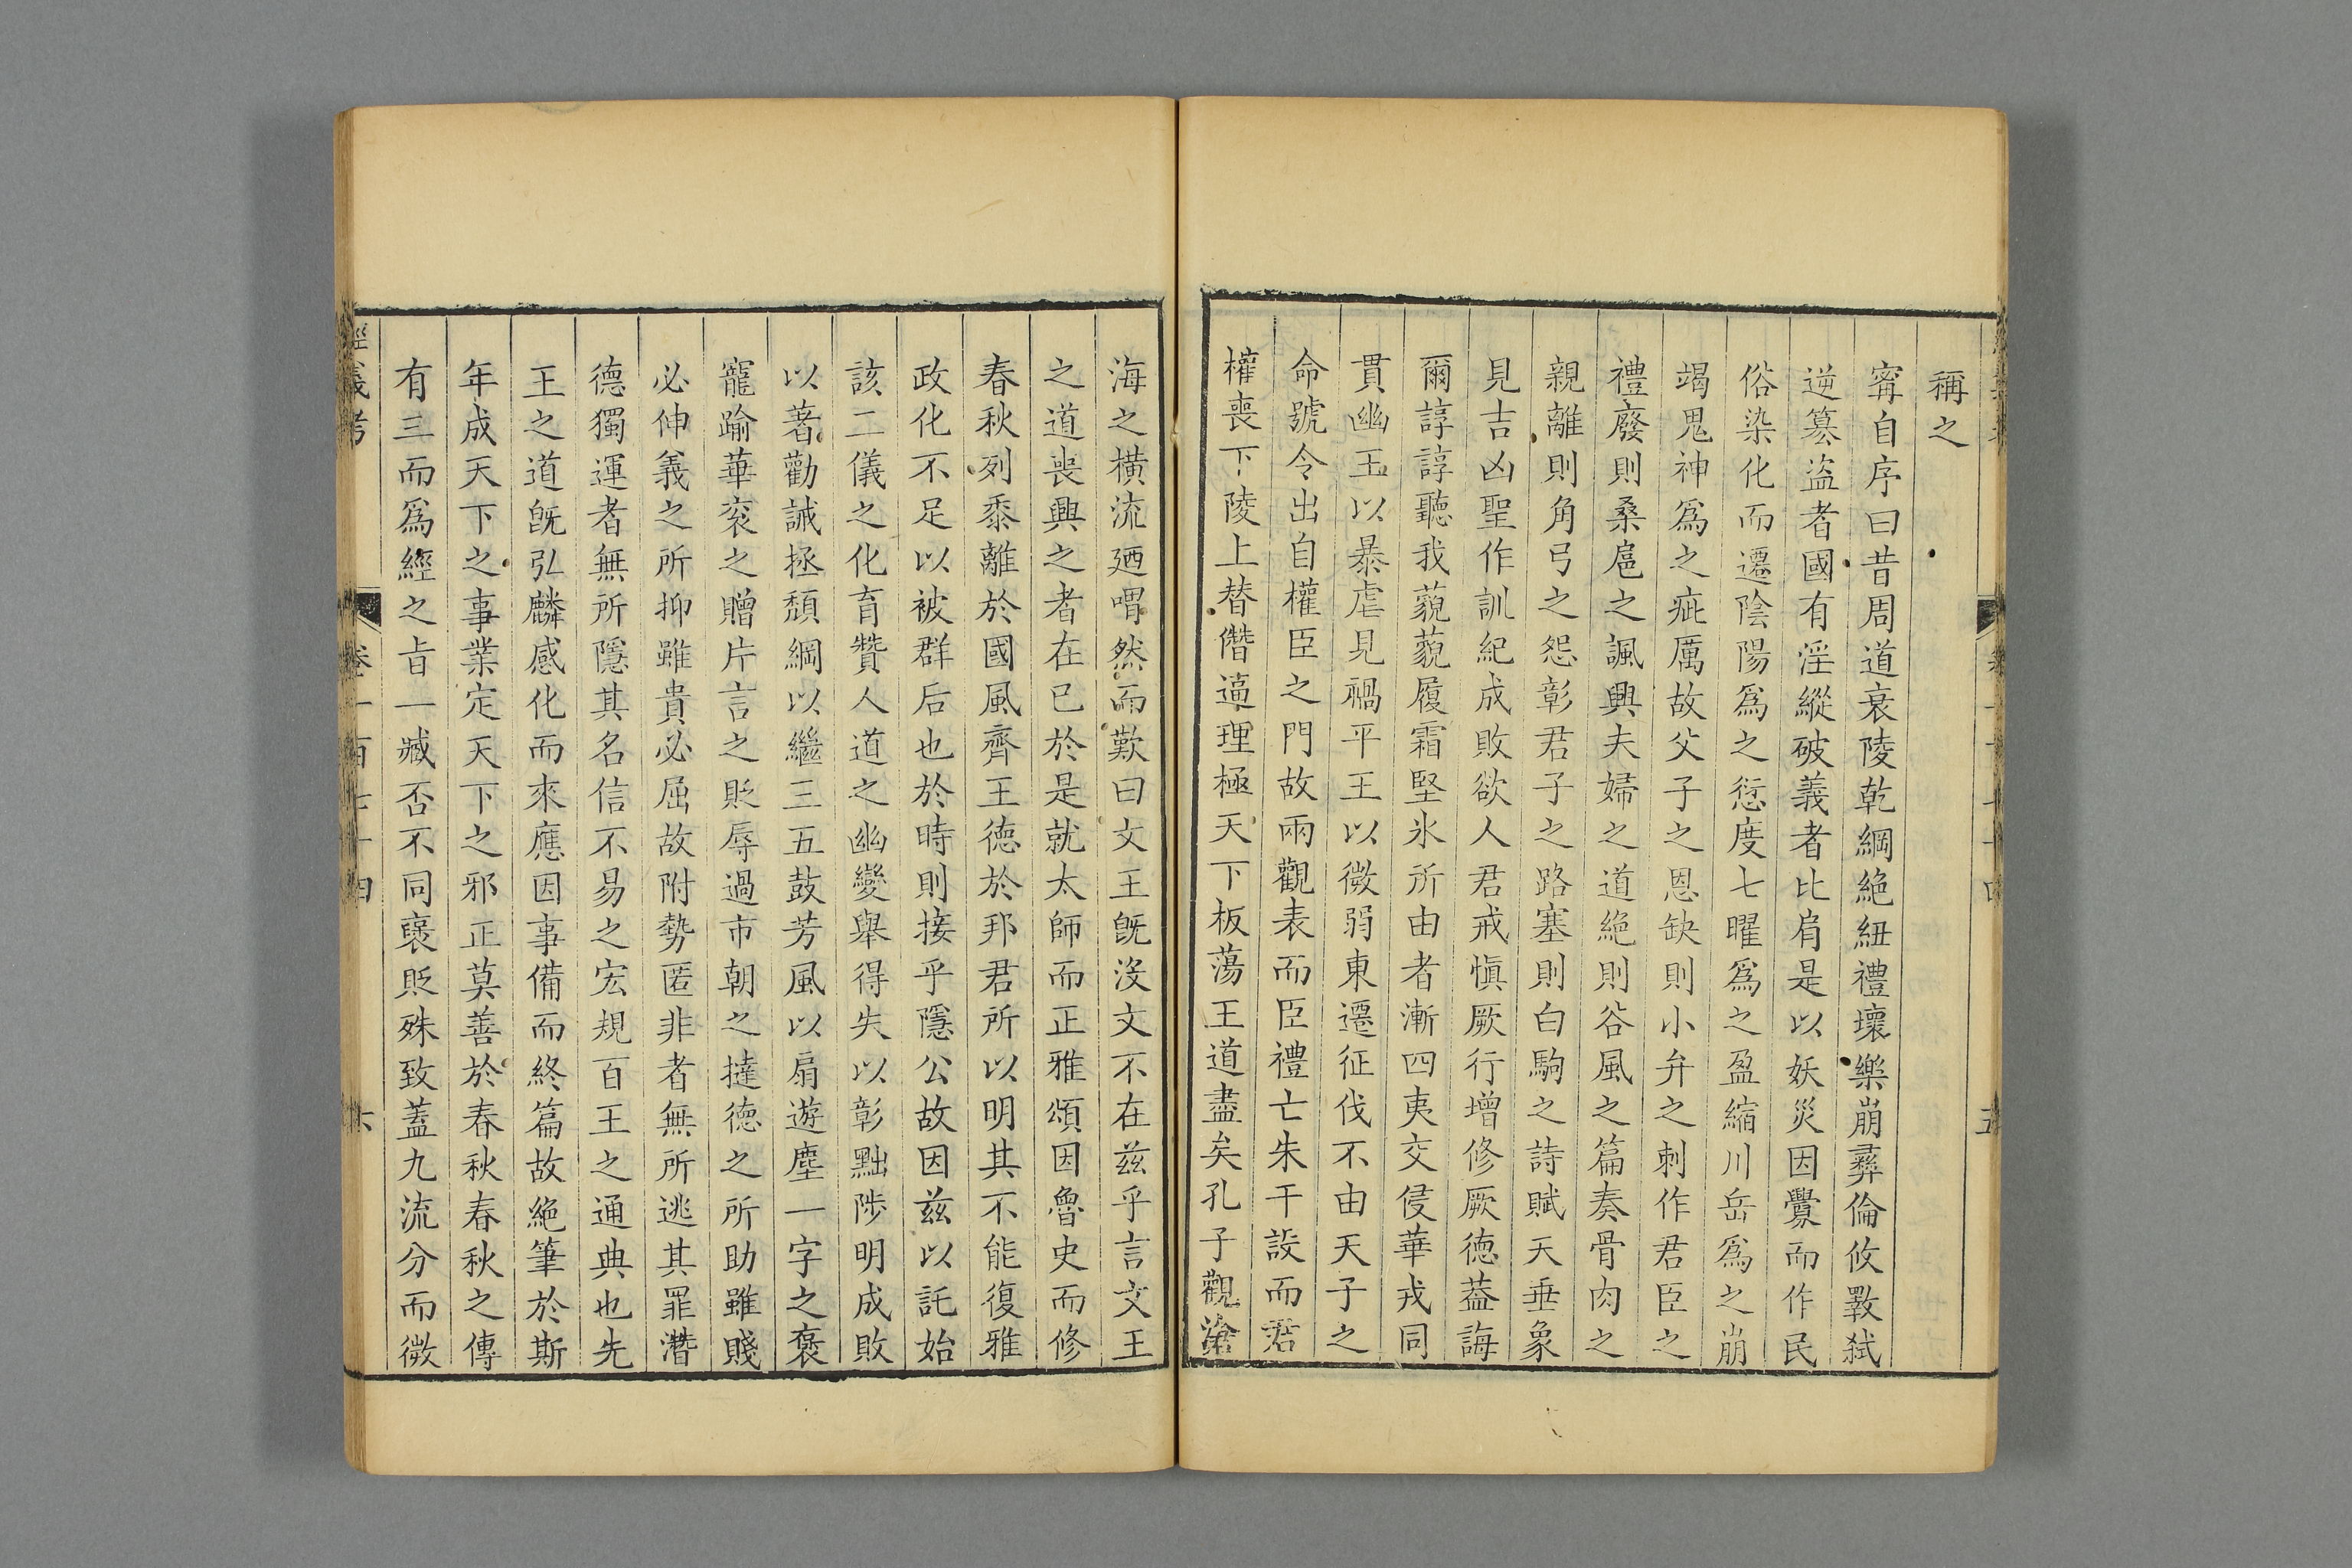 稱之
甯自序曰昔周道衰陵乾綱絶紐禮壞樂崩彛倫攸斁弑
逆簒盗者國有淫縱破義者比肩是以妖災因釁而作民
俗染化而遷陰陽爲之愆度七曜爲之盈縮川岳爲之崩
竭鬼神爲之疵厲故父子之恩缺則小弁之刺作君臣之
禮廢則桑扈之諷興夫婦之道絶則谷風之篇奏骨肉之
親離則角弓之怨彰君子之路塞則白駒之詩賦天垂象
見吉凶聖作訓紀成敗欲人君戒愼厥行增修厥德葢誨
爾諄諄聽我藐藐履霜堅氷所由者漸四夷交侵華戎同
貫幽王以暴虐見禍平王以微弱東遷征伐不由天子之
命號令出自權臣之門故兩觀表而臣禮亡朱干設而君
權喪下陵上替僭逼理極天下板蕩王道盡矣孔子觀滄
海之横流廼喟然而歎曰文王旣没文不在兹乎言文王
之道喪興之者在已於是就太師而正雅頌因魯史而修
春秋列黍離於國風齊王德於邦君所以明其不能復雅
政化不足以被群后也於時則接乎隱公故因兹以託始
該二儀之化育贊人道之幽變舉得失以彰黜陟明成敗
以著勸誡拯頽綱以繼三五鼓芳風以扇遊塵一字之褒
寵踰華衮之贈片言之貶辱過市朝之撻德之所助雖賤
必伸義之所抑雖貴必屈故附勢匿非者無所逃其罪潛
德獨運者無所隱其名信不易之宏規百王之通典也先
王之道旣弘麟感化而來應因事備而終篇故絶筆於斯
年成天下之事業定天下之邪正莫善於春秋春秋之傳
有三而爲經之旨一臧否不同褒貶殊致蓋九流分而微
經義考
卷一百七十四
六